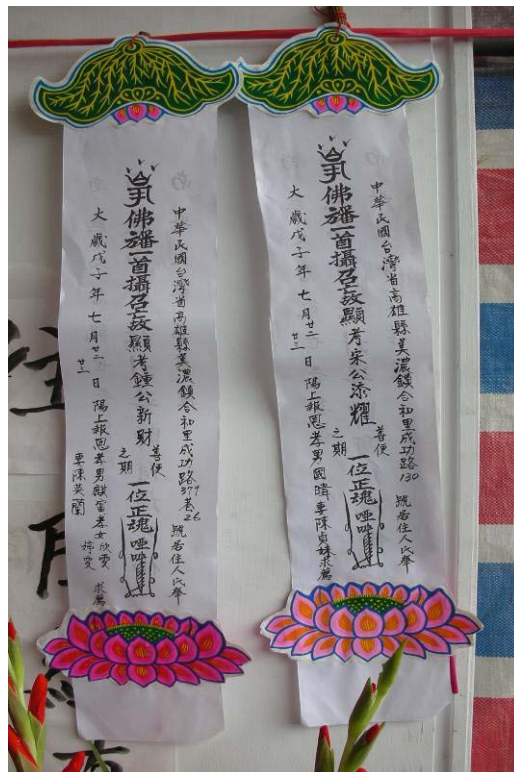 中華民國台灣省高雄縣美濃鎮合和里成功路130 號居住人氏肇
佛旛一首攝召故顯考宋公添耀 善便之期 一位正魂
大歲戊子年七月廿二廿三日陽上報恩孝男國暐妻陳貞妹求薦
中華民國台灣省高雄縣美濃鎮合和里成功路379巷26 號居住人氏肇
佛旛一首攝召故顯考鍾公新財 善便之期 一位正魂
大歲戊子年七月廿二廿三日陽上報恩孝男 富孝女欣雯婷雯 求薦
妻陳英蘭